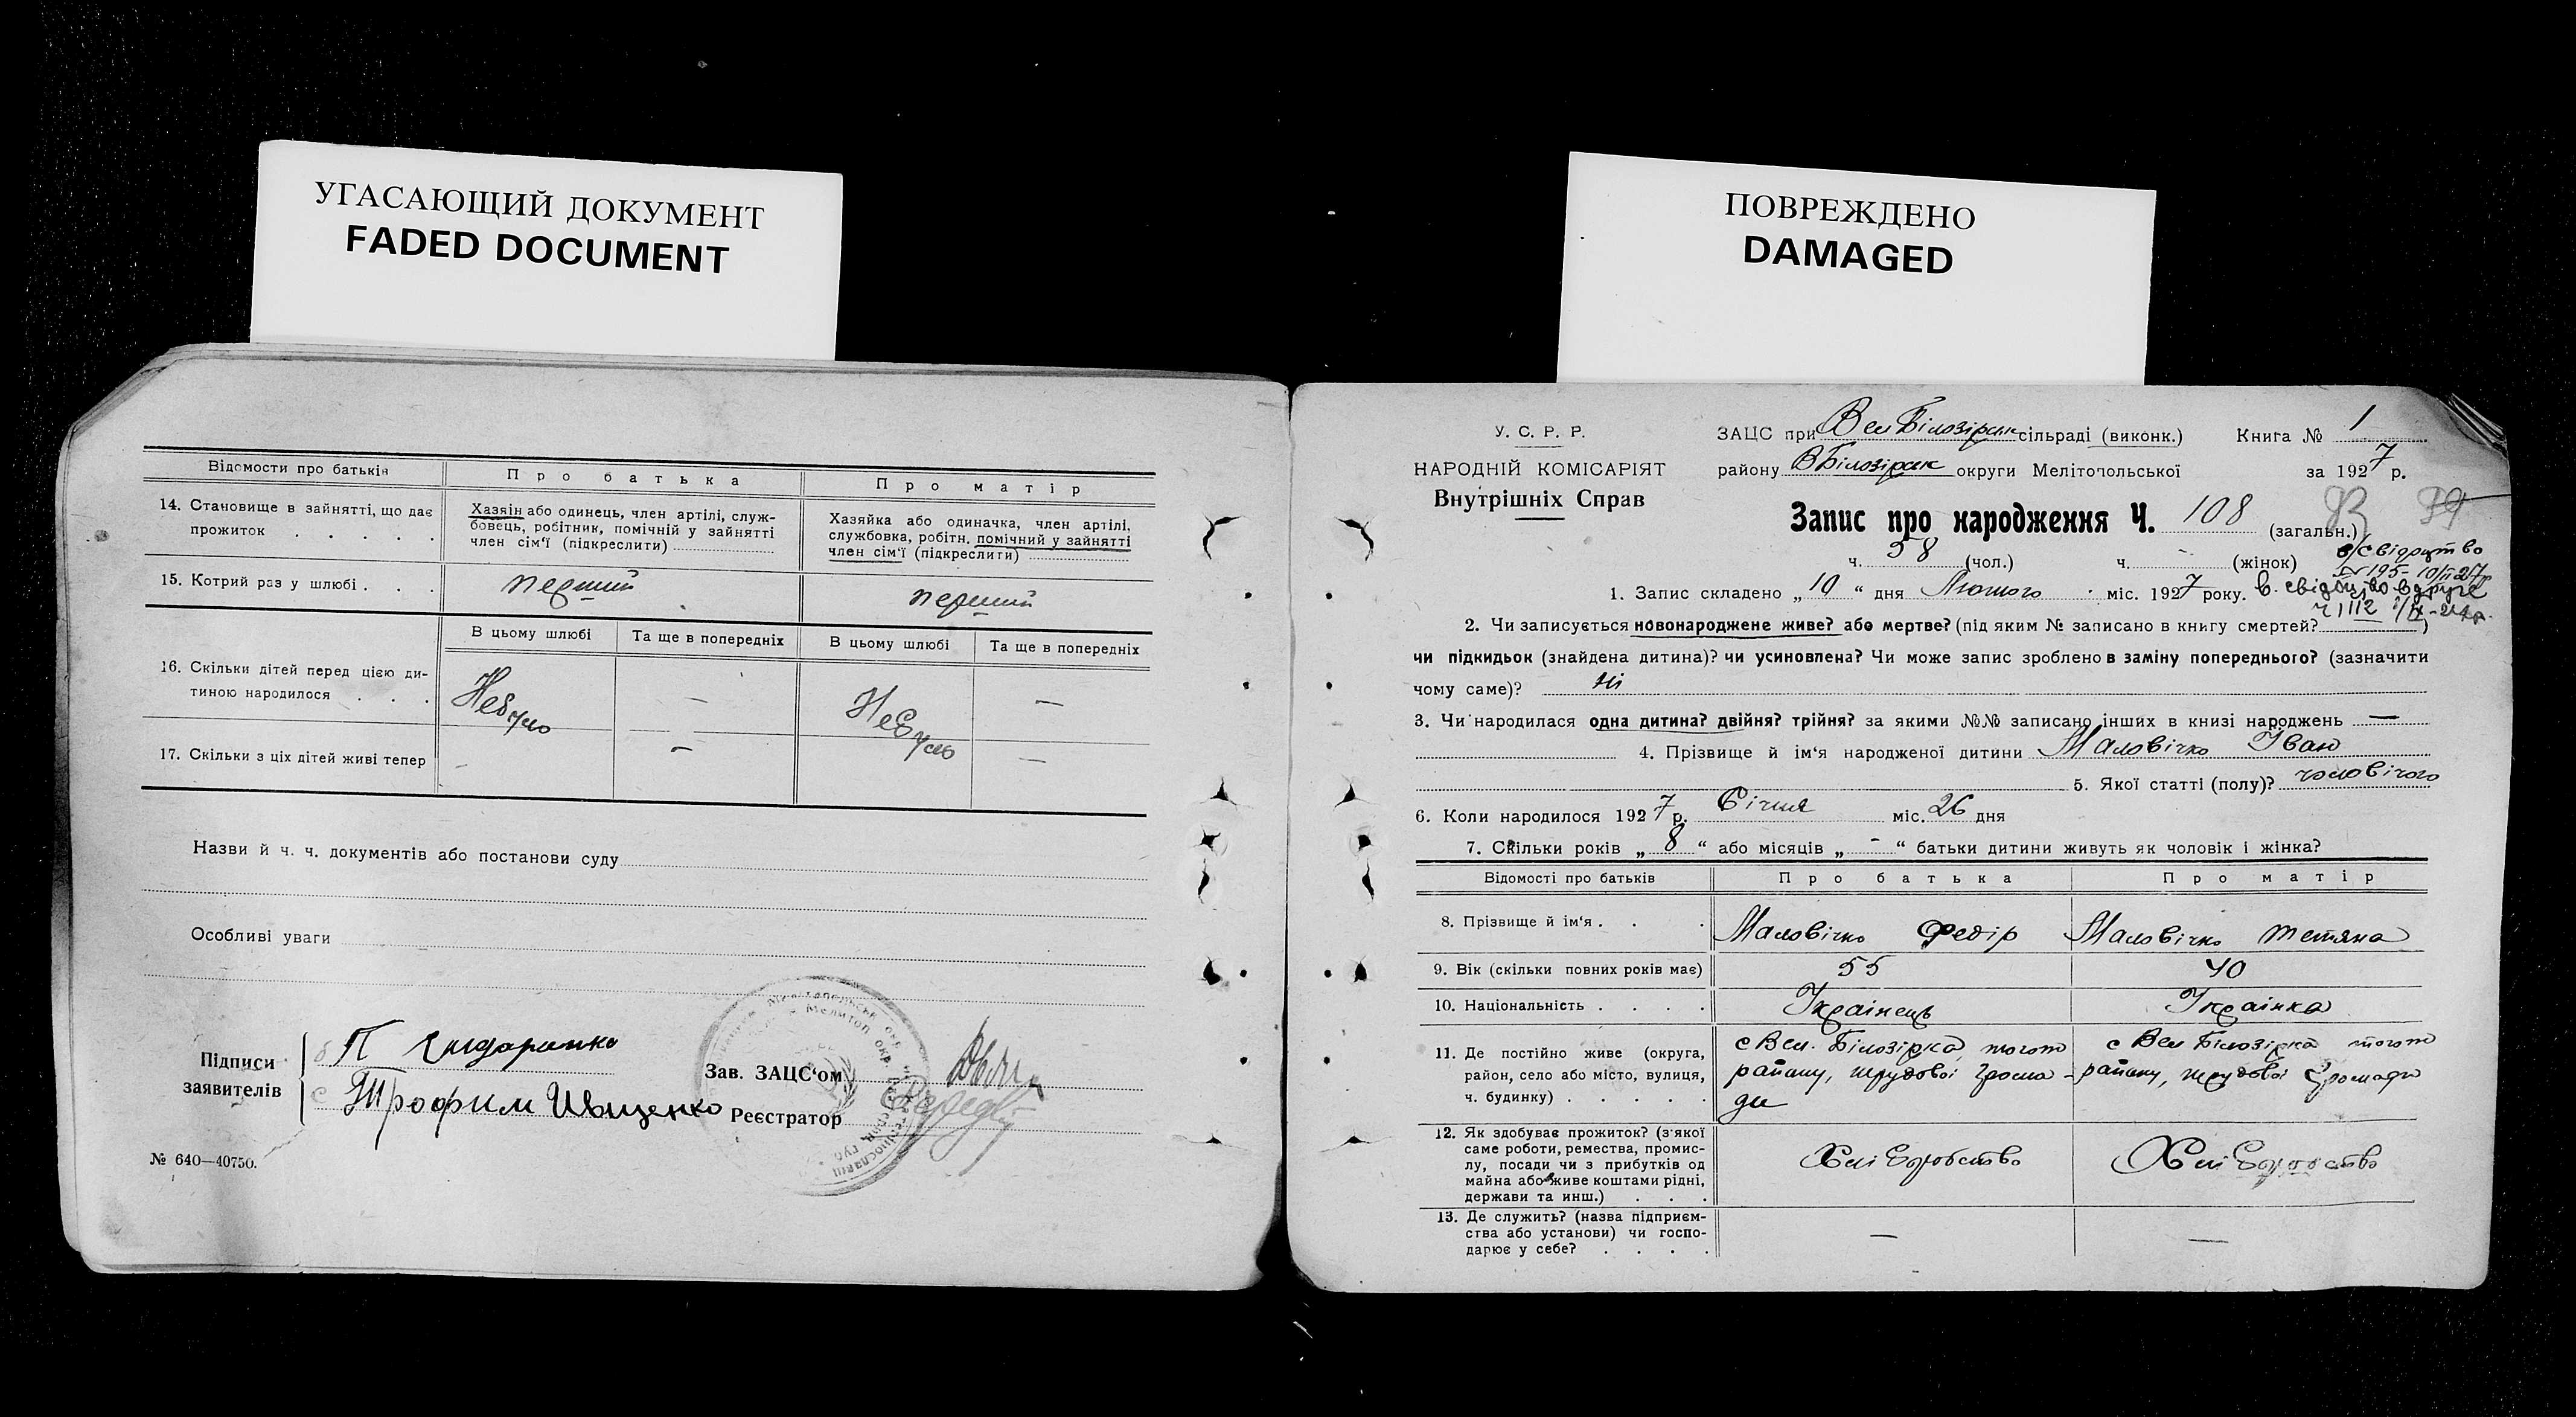 УГАСАЮЩИЙ ДОКУМЕНТ
FADED DOCUMENT
Відомости про батьків
Про батька
Про матір
14. Становище в зайнятті, що дає прожиток . . . . .
Хазяін або одинець, член артілі, служ-
бовець, робітник, помічній у зайнятті
член сім'ї (підкреслити)
Хазяйка або одиначка, член артілі,
службовка, робітн. помічний у зайнятті
член сім'ї (підкреслити)
15. Котрий раз у шлюбі . . .
перший
перший
В цьому шлюбі
Та ще в попередніх
В цьому шлюбі
Та ще в попередніх
16. Скільки дітей перед цією ди-
тиною народилося . . .
Небуло
—
Небуло
—
17. Скільки з ціх дітей живі тепер
–
—
—
Назви й ч. ч. документів або постанови суду
Особливі уваги
Підписи
заявителів
П
Трофим Иващенко
Зав. ЗАЦС'ом
Реєстратор
№ 640—40750.
ПОВРЕЖДЕНО
DAMAGED
У. С. Р. Р.
НАРОДНІЙ КОМІСАРІЯТ
Внутрішніх Справ
ЗАЦС при Вел Білозірськ сільраді (виконк.) Книга № 1
району ВБілозірськ округи Мелітопольської за 1927 р.
Запис про народження Ч. 108 (загальн.)
ч. 58 (чол.) ч. - (жінок)
в/свідоцтво
№ 195- 10/II-27
1. Запис складено „ 10 “ дня Лютого міс. 1927 року.
в. свідоцтво вдруге
ч 1112
2. Чи записується новонароджене живе? або мертве? (під яким № записано в книгу смертей? )
чи підкидьок (знайдена дитина)? чи усиновлена? Чи може запис зроблено в заміну попереднього? (зазначити
чому саме)? Ні
3. Чи народилася одна дитина? двійня? трійня? за якими №№ записано інших в книзі народжень —
4. Прізвище й ім'я народженої дитини Маловічко Іван
5. Якої статті (полу)? чоловічого
6. Коли народилося 1927 р. Січня міс. 26 дня
7. Скільки років „ 8 “ або місяців „ - “ батьки дитини живуть як чоловік і жінка?
Відомості про батьків
Про батька
Про матір
8. Прізвище й ім'я . . .
Маловічко Федір
Маловічко Тетяна
9. Вік (скільки повних років має)
55
40
10. Національність . . . .
Українець
Українка
11. Де постійно живе (округа,
район, село або місто, вулиця,
ч. будинку) . . . . .
с Вел. Білозірка, того
району, трудової грома-
ди
с Вел Білозірка того
району, трудової громади
12. Як здобуває прожиток? (з'якої
саме роботи, ремества, промис-
лу, посади чи з прибутків од
майна або живе коштами рідні,
держави та инш.) . . .
Хліборобство
Хліборобство
13. Де служить? (назва підприєм-
ства або установи) чи госпо-
дарює у себе? . . . .
—
—